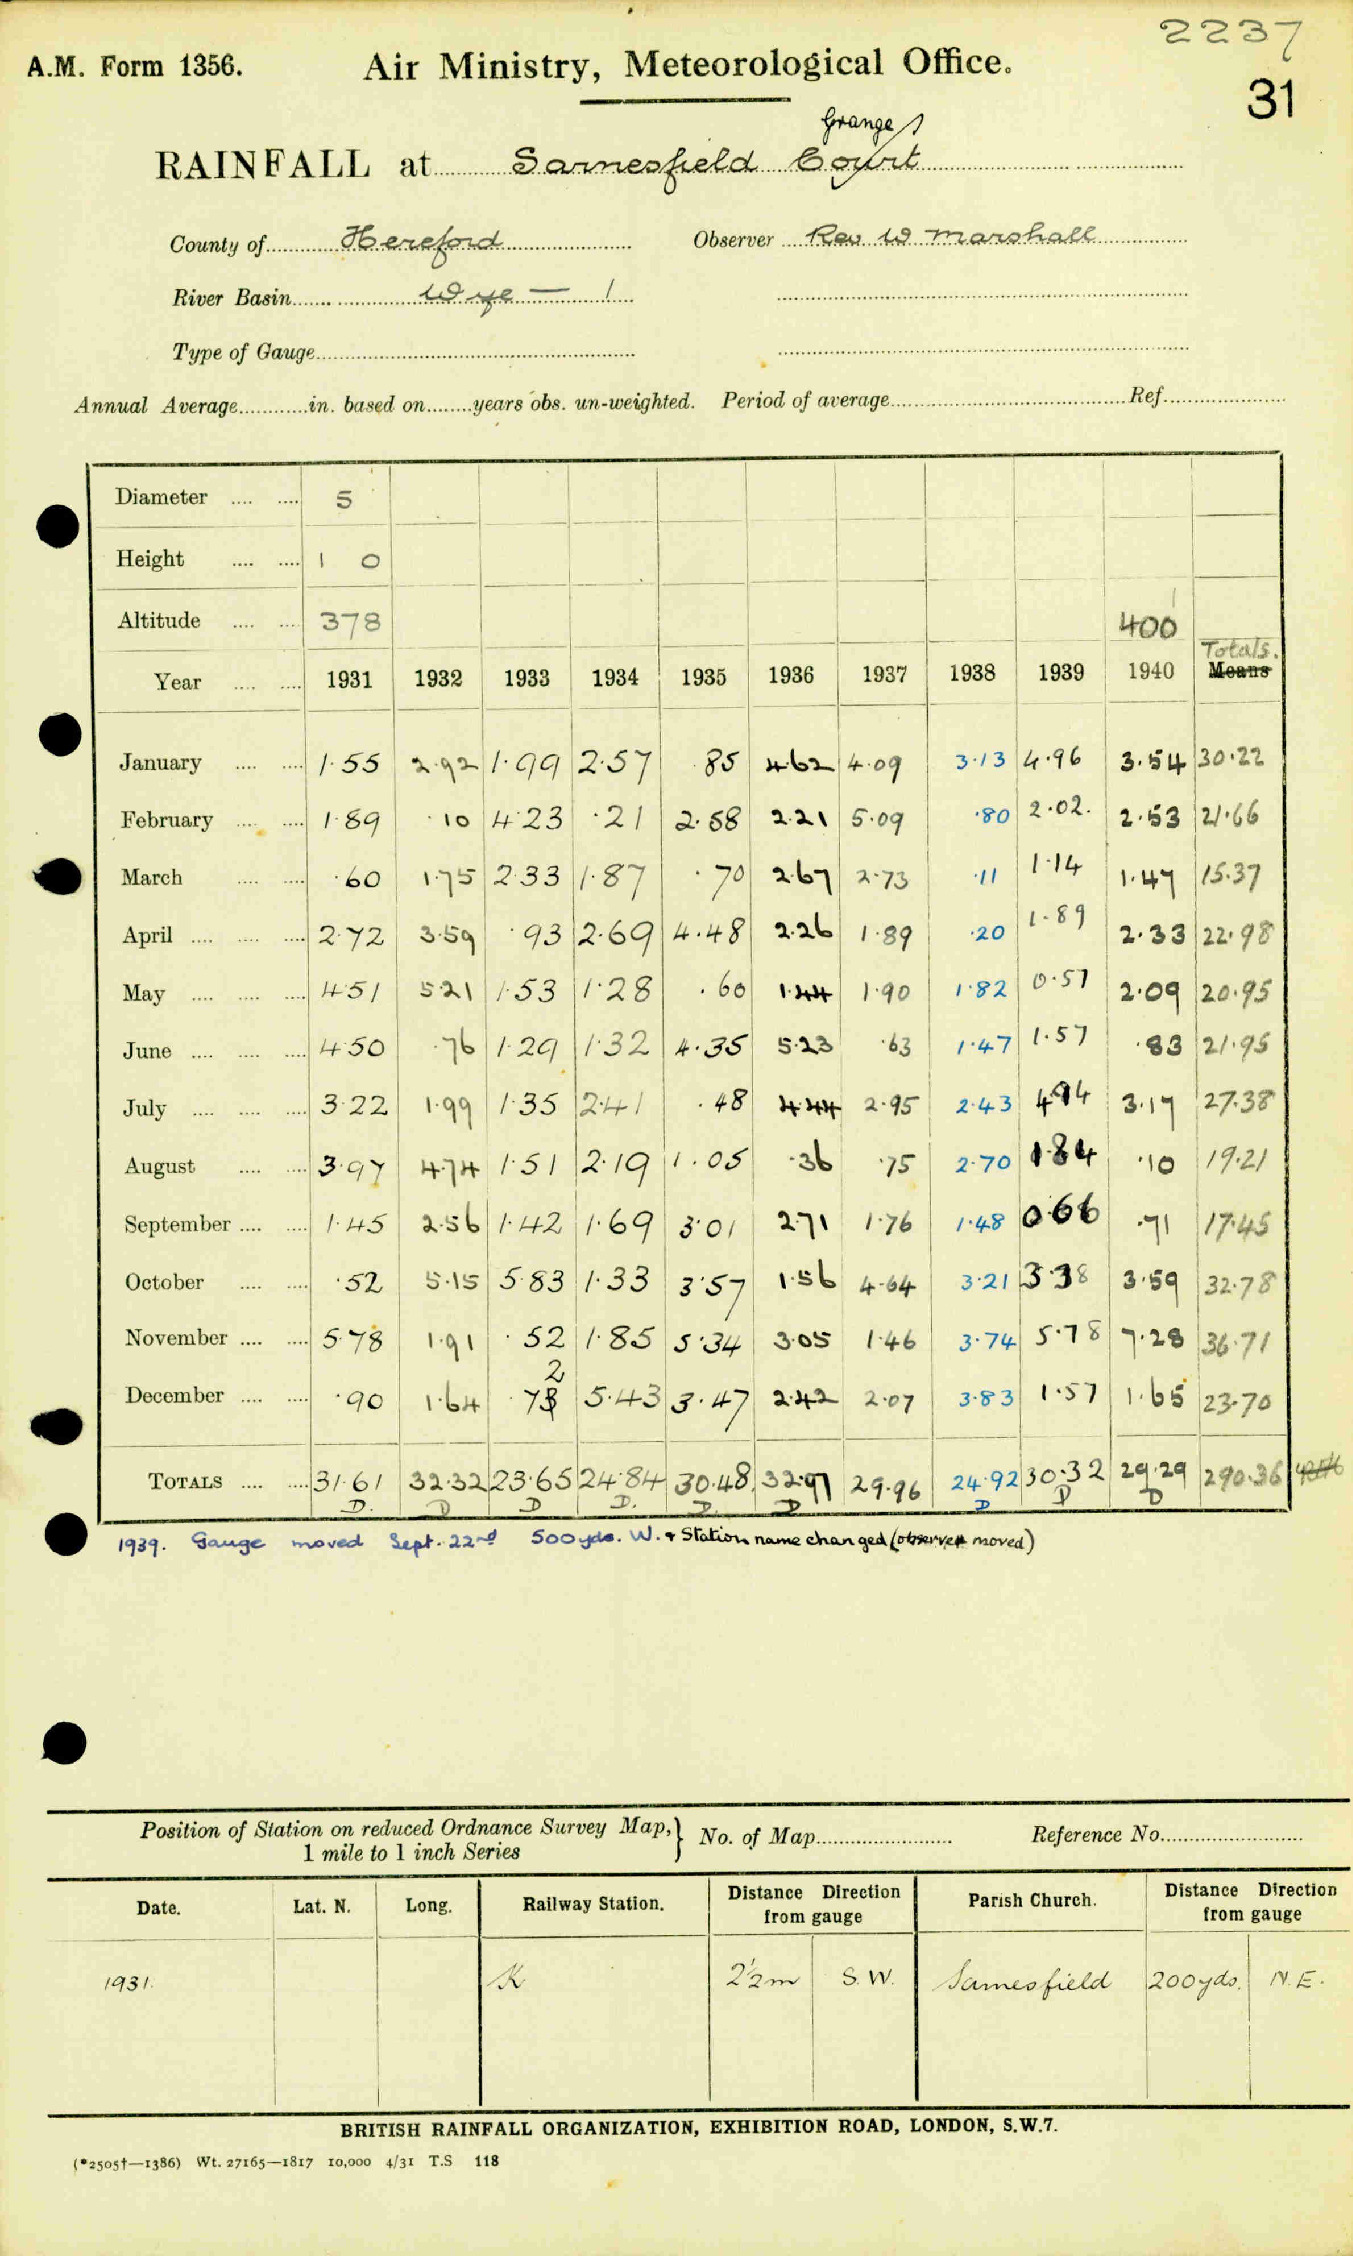 2237
A.M. Form 1356. Air Ministry, Meteorological Office.
31
Grange
RAINFALL at Sarnesfield Court
County of Hereford Observer Rev W Marshall
River Basin Wye — 1
Type of Gauge
Annual Average in. based on years obs. un-weighted. Period of average Ref.
Diameter 5
Height 1 0
Altitude 378 400
Totals.
Year 1931 1932 1933 1934 1935 1936 1937 1938 1939 1940 Means
January 1.55 2.92 1.99 2.57 .85 4.62 4.09 3.13 4.96 3.54 30.22
February 1.89 .10 4.23 .21 2.58 2.21 5.09 .80 2.02. 2.53 21.66
March .60 1.75 2.33 1.87 .70 2.67 2.73 .11 1.14 1.47 15.37
April 2.72 3.59 .93 2.69 4.48 2.26 1.89 .20 1.89 2.33 22.98
May 4.51 5.21 1.53 1.28 .60 1.44 1.90 1.82 0.57 2.09 20.95
June 4.50 .76 1.29 1.32 4.35 5.23 .63 1.47 1.57 .83 21.95
July 3.22 1.99 1.35 2.41 .48 4.44 2.95 2.43 4.94 3.17 27.38
August 3.97 4.74 1.51 2.19 1.05 .36 .75 2.70 1.84 .10 19.21
September 1.45 2.56 1.42 1.69 3.01 2.71 1.76 1.48 0.66 .71 17.45
October .52 5.15 5.83 1.33 3.57 1.56 4.64 3.21 3.38 3.59 32.78
November 5.78 1.91 .52 1.85 5.34 3.05 1.46 3.74 5.78 7.28 36.71
2
December .90 1.64 .73 5.43 3.47 2.42 2.07 3.83 1.57 1.65 23.70
TOTALS 31.61 32.32 23.65 24.84 30.48 32.97 29.96 24.92 30.32 29.29 290.36
D. D D D. D. D D D D
1939. Gauge moved Sept. 22nd 500 yds. W. + Station name changed (observer moved)
Position of Station on reduced Ordnance Survey Map, } No. of Map Reference No.
1 mile to 1 inch Series
Date. Lat. N. Long. Railway Station. Distance Direction from gauge Parish Church. Distance Direction from gauge
1931. K 2½m S.W. Sarnesfield 200 yds. N.E.
BRITISH RAINFALL ORGANIZATION, EXHIBITION ROAD, LONDON, S.W.7.
(*2505†—1386) Wt. 27165—1817 10,000 4/31 T.S 118